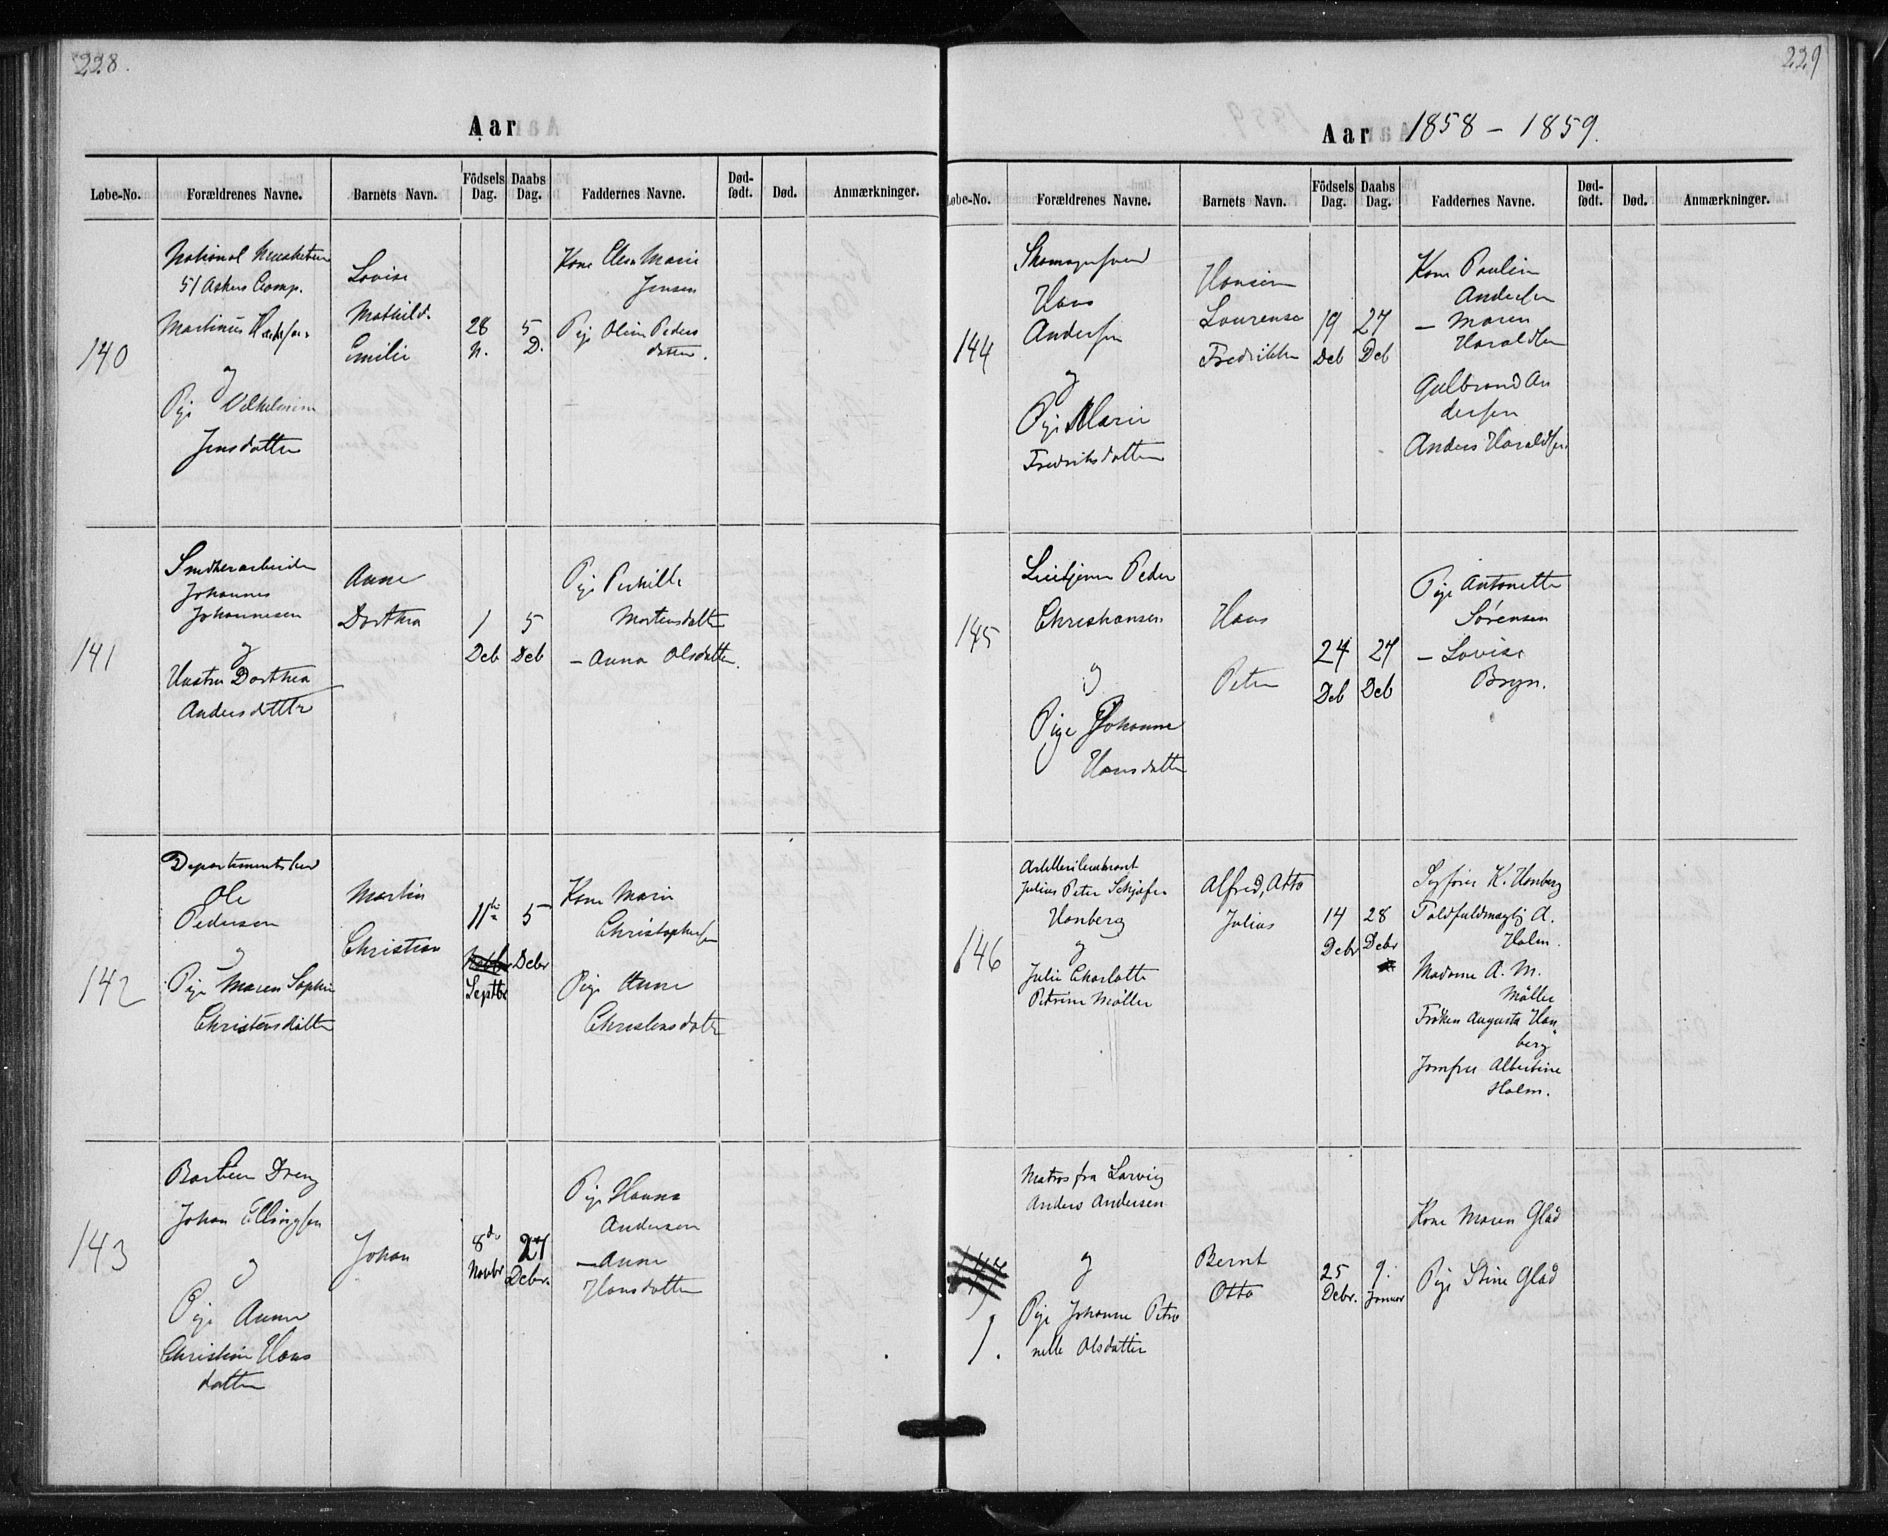 228.
Aar
Løbe-No. Forældrenes Navne. Barnets Navn. Födsels Dag. Daabs Dag. Faddernes Navne. Død-födt. Død. Anmærkninger.
140
National
51 Askers Comp.
Martinus
og
Pige Vilhelmine
Jensdatter
Lovise
Mathilde
Emilie
28
N.
5
D.
Kone Marie
Jensen
Pige Oline Peders
datter.
141
Johannes
Johannesen
og
Hustru Dorthea
Andersdatter
Anne
Dorthea
1
Deb
5
Deb
Pige Pernille
Mortensdatter
– Anna Olsdatter.
142
Departementsbud
Ole
Pedersen
og
Pige Maren Sophie
Christensdatter
Martin
Christian
11te
Septbr
5
Debr
Kone Marie
Christophersen
Pige Anne
Christensdatter
143
Barbeer Dreng
Johan Ellingsen
og
Pige Anne
Christine Hans
datter
Johan
8de
Novbr
27
Debr.
Pige Hanna
Andersen
– Anne
Hansdatter
229
Aar 1858 – 1859.
Løbe-No. Forældrenes Navne. Barnets Navn. Födsels Dag. Daabs Dag. Faddernes Navne. Död-födt. Død. Anmærkninger.
144
Skomagersvend
Hans
Andersen
og
Pige Marie
Fredriksdatter
Hansine
Laurense
Fredrikke
19
Deb
27
Deb
Kone Pauline
Andersen
– Maren
Haraldsen
Gulbrand An
dersen
Anders Haraldsen
145
Peder
Christiansen
og
Pige Johanne
Hansdatter
Hans
Peter
24
Deb
27
Deb
Pige Antonette
Sørensen
– Lovise
Bryn.
146
Julius Peter
Hanberg
og
Julie Charlotte
Petrine Møller
Alfred, Otto
Julius
14
Debr
28
Debr
K. Hanberg
Toldfuldmægtig A.
Holm.
Madame A. M.
Møller
Frøken Augusta Han
berg
Jomfru Albertine
Holm.
1.
Matros fra Larvig
Anders Andersen
og
Pige Johanne Petro
nelle Olsdatter
Bernt
Otto
25
Debr.
9.
Januar
Kone Maren Glad
Pige Stine Glad